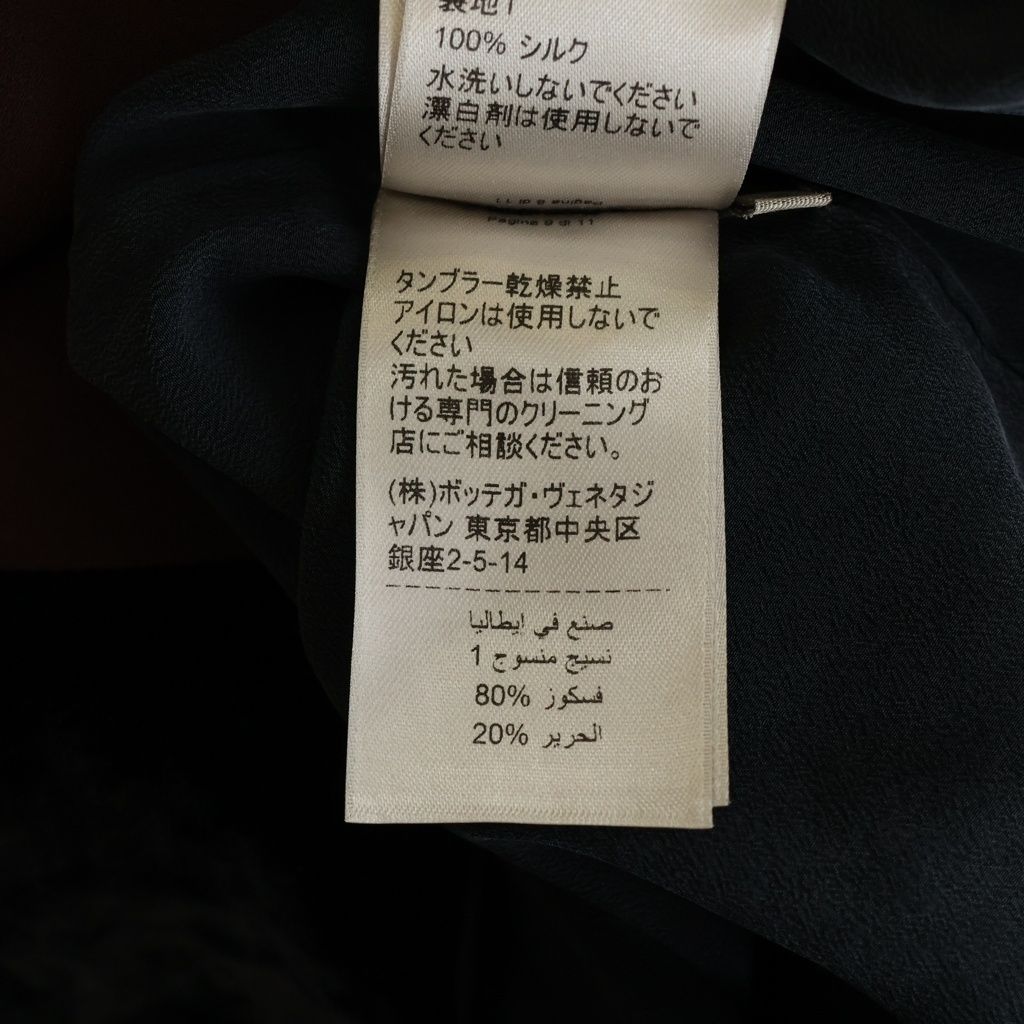 裏地1
100% シルク
水洗いしないでください
漂白剤は使用しないで
ください
Pagina 9 di 11
タンブラー乾燥禁止
アイロンは使用しないで
ください
汚れた場合は信頼のお
ける専門のクリーニング
店にご相談ください。
(株)ボッテガ・ヴェネタジ
ャパン 東京都中央区
銀座2-5-14
صنع في إيطاليا
نسيج منسوج 1
فسكوز 80%
الحرير 20%